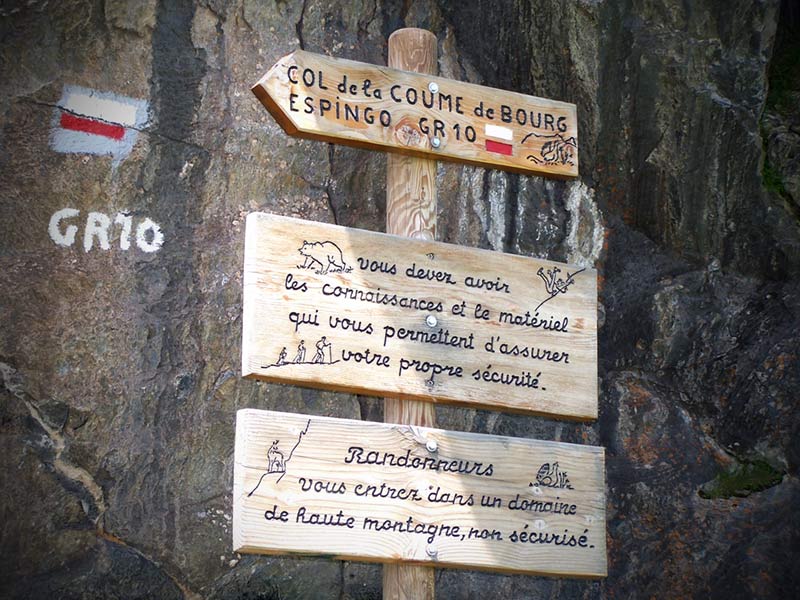 COL de la COUME de BOURG
ESPINGO GR10
GR10
vous devez avoir
les connaissances et le matériel
qui vous permettent d'assurer
votre propre sécurité.
Randonneurs
vous entrez dans un domaine
de haute montagne, non sécurisé.